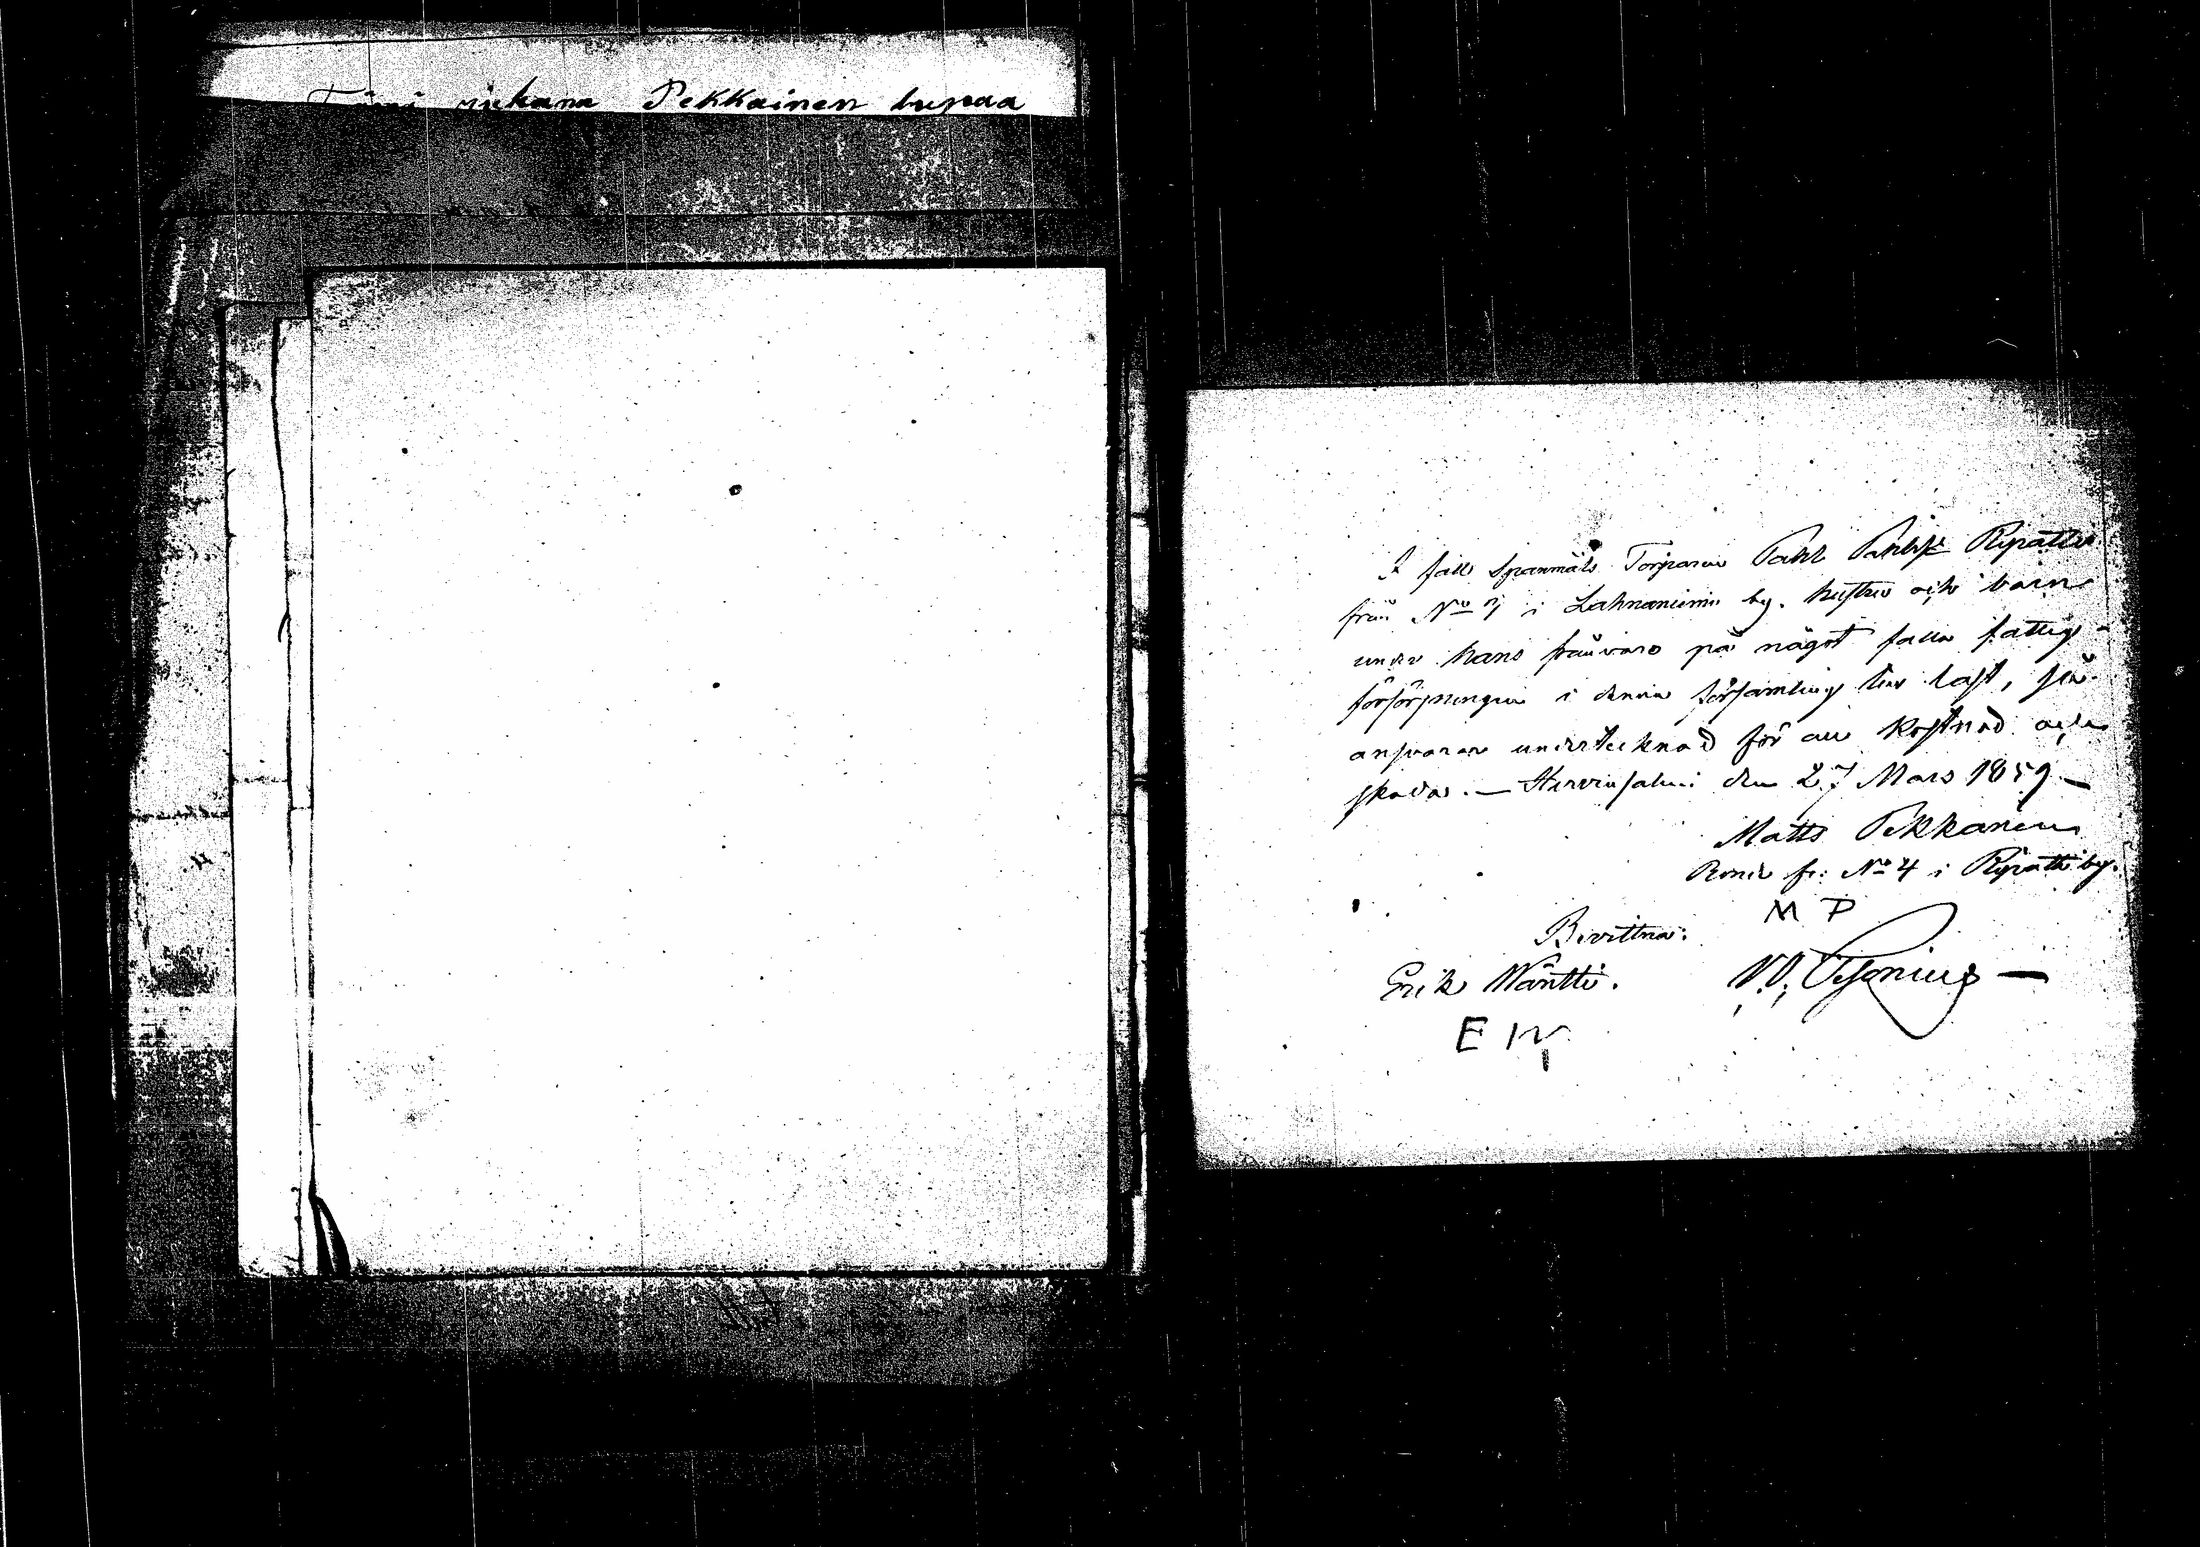 juhana Pekkainen lupaa
I fall Spanmäls Torparen Pahl Pahlsse Ripatti
från No 7 i Lahnaniemi by, hustru och barn
under hans frånvaro på något falla fattig-
försörjningen i denna församling till last, så
ansvarar undertecknad för all kostnad och
skada. — Hirvensalmi den 27 Mars 1859 —
Matts Pekkanen
Bonde fr: No 4 i Ripatti by.
M P
Bevittna:
Erik Wäntti.
E W